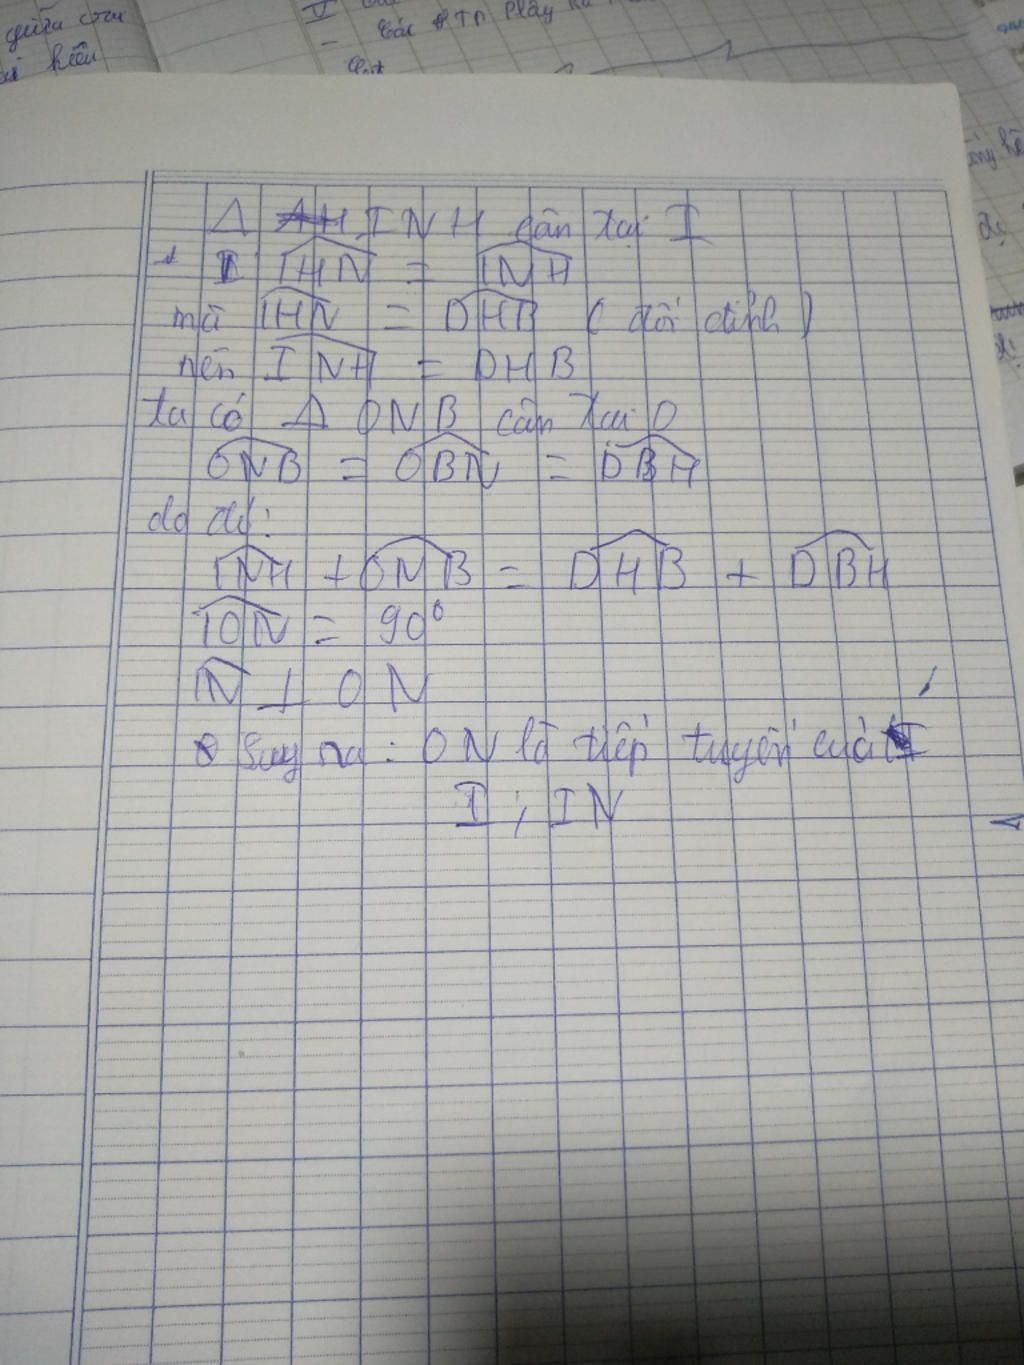 giữa
V
Các TTP
hiểu
Δ INH cân tại I
IHN = INH
mà IHN = DHB (đối đỉnh)
nên INH = DHB
ta có Δ ONB cân tại O
ONB = OBN = DBH
do đó:
INH + ONB = DHB + DBH
ION = 90°
IN ⊥ ON
Suy ra: ON là tiếp tuyến của
I; IN